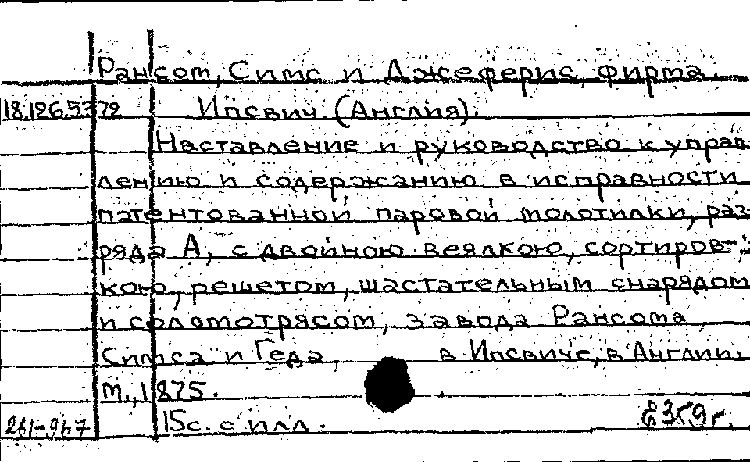 Рансом, Симс и Джеферис, фирма.
18.126.5372 Ипсвич (Англия).
Наставление и руководство к управ
лению и содержанию в исправности
патентованной паровой молотилки, раз
ряда А, с двойною веялкою, сортиров-
кою, решетом, шастательным снарядом
и соломотрясом, завода Рансома,
Симса и Геда, в Ипсвиче, в Англии.
М., 1875.
15с. с илл.